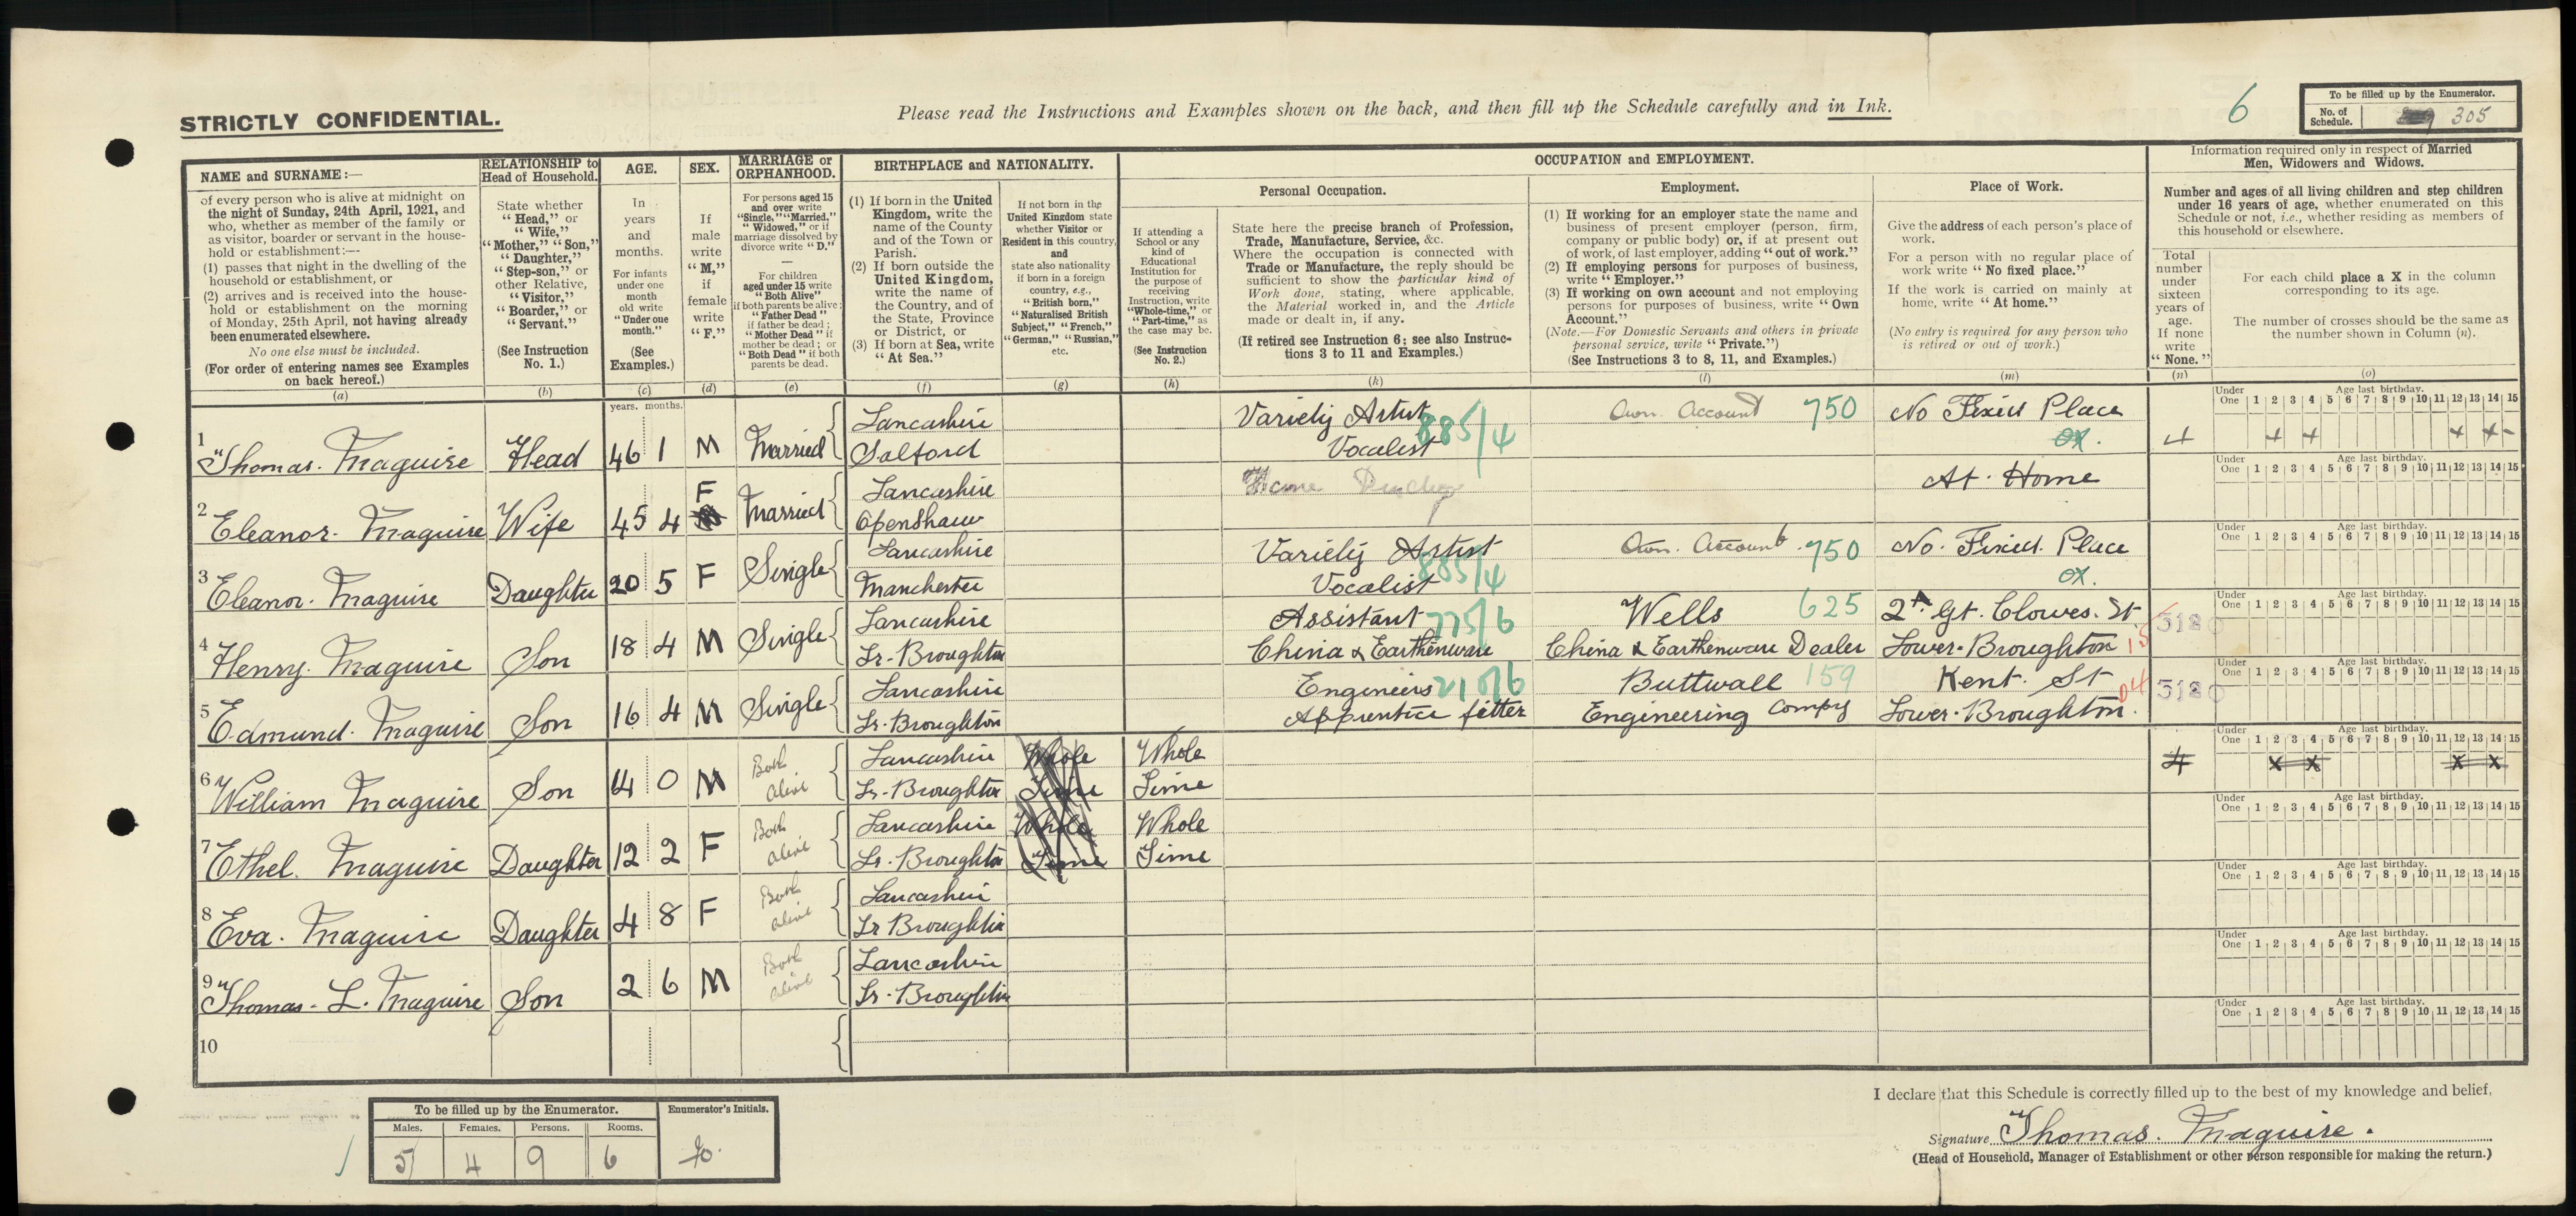 STRICTLY CONFIDENTIAL.
Please read the Instructions and Examples shown on the back, and then fill up the Schedule carefully and in Ink.
6
To be filled up by the Enumerator.
No. of Schedule. 305
NAME and SURNAME:—
of every person who is alive at midnight on
the night of Sunday, 24th April, 1921, and
who, whether as member of the family or
as visitor, boarder or servant in the house-
hold or establishment:—
(1) passes that night in the dwelling of the
household or establishment, or
(2) arrives and is received into the house-
hold or establishment on the morning
of Monday, 25th April, not having already
been enumerated elsewhere.
No one else must be included.
(For order of entering names see Examples
on back hereof.)
(a)
RELATIONSHIP to
Head of Household.
State whether
"Head," or
"Wife,"
"Mother," "Son,"
"Daughter,"
"Step-son," or
other Relative,
"Visitor,"
"Boarder," or
"Servant."
(See Instruction
No. 1.)
(b)
AGE.
In
years
and
months.
For infants
under one
month
old write
"Under one
month."
(See
Examples.)
(c)
SEX.
If
male
write
"M,"
if
female
write
"F."
(d)
MARRIAGE or
ORPHANHOOD.
For persons aged 15
and over write
"Single," "Married,"
"Widowed," or if
marriage dissolved by
divorce write "D."
—
For children
aged under 15 write
"Both Alive"
if both parents be alive;
"Father Dead"
if father be dead;
"Mother Dead" if
mother be dead; or
"Both Dead" if both
parents be dead.
(e)
BIRTHPLACE and NATIONALITY.
(1) If born in the United
Kingdom, write the
name of the County
and of the Town or
Parish.
(2) If born outside the
United Kingdom,
write the name of
the Country, and of
the State, Province
or District, or
(3) If born at Sea, write
"At Sea."
(f)
If not born in the
United Kingdom state
whether Visitor or
Resident in this country,
and
state also nationality
if born in a foreign
country, e.g.,
"British born,"
"Naturalised British
Subject," "French,"
"German," "Russian,"
etc.
(g)
OCCUPATION and EMPLOYMENT.
If attending a
School or any
kind of
Educational
Institution for
the purpose of
receiving
Instruction, write
"Whole-time," or
"Part-time," as
the case may be.
(See Instruction
No. 2.)
(h)
Personal Occupation.
State here the precise branch of Profession,
Trade, Manufacture, Service, &c.
Where the occupation is connected with
Trade or Manufacture, the reply should be
sufficient to show the particular kind of
Work done, stating, where applicable,
the Material worked in, and the Article
made or dealt in, if any.
(If retired see Instruction 6; see also Instruc-
tions 3 to 11 and Examples.)
(k)
Employment.
(1) If working for an employer state the name and
business of present employer (person, firm,
company or public body) or, if at present out
of work, of last employer, adding "out of work."
(2) If employing persons for purposes of business,
write "Employer."
(3) If working on own account and not employing
persons for purposes of business, write "Own
Account."
(Note.—For Domestic Servants and others in private
personal service, write "Private.")
(See Instructions 3 to 8, 11, and Examples.)
(l)
Place of Work.
Give the address of each person's place of
work.
For a person with no regular place of
work write "No fixed place."
If the work is carried on mainly at
home, write "At home."
(No entry is required for any person who
is retired or out of work.)
(m)
Information required only in respect of Married
Men, Widowers and Widows.
Number and ages of all living children and step children
under 16 years of age, whether enumerated on this
Schedule or not, i.e., whether residing as members of
this household or elsewhere.
Total
number
under
sixteen
years of
age.
If none
write
"None."
(n)
For each child place a X in the column
corresponding to its age.
The number of crosses should be the same as
the number shown in Column (n).
(o)
years. months.
Under One Age last birthday. 1 2 3 4 5 6 7 8 9 10 11 12 13 14 15
1 Thomas. Maguire Head 46 1 M Married Lancashire Salford Variety Artist Vocalist 885/4 Own Account 750 No Fixed Place ox. 4 x x x x
Under One Age last birthday. 1 2 3 4 5 6 7 8 9 10 11 12 13 14 15
2 Eleanor. Maguire Wife 45 4 F Married Lancashire Openshaw Home At. Home
Under One Age last birthday. 1 2 3 4 5 6 7 8 9 10 11 12 13 14 15
3 Eleanor. Maguire Daughter 20 5 F Single Lancashire Manchester Variety Artist Vocalist 885/4 Own. Account 750 No. Fixed. Place ox.
Under One Age last birthday. 1 2 3 4 5 6 7 8 9 10 11 12 13 14 15
4 Henry. Maguire Son 18 4 M Single Lancashire Lr-Broughton Assistant 775/6 China & Earthenware Wells 625 China & Earthenware Dealer 2A Gt. Clowes. St. Lower-Broughton 15 3120
Under One Age last birthday. 1 2 3 4 5 6 7 8 9 10 11 12 13 14 15
5 Edmund. Maguire Son 16 4 M Single Lancashire Lr-Broughton Engineers 210/6 Apprentice fitter Buttwall 159 Engineering Compy Kent. St Lower-Broughton. 04 3120
Under One Age last birthday. 1 2 3 4 5 6 7 8 9 10 11 12 13 14 15
6 William Maguire Son 14 0 M Both alive Lancashire Lr-Broughton Whole Time Whole Time 4 x x x x
Under One Age last birthday. 1 2 3 4 5 6 7 8 9 10 11 12 13 14 15
7 Ethel. Maguire Daughter 12 2 F Both alive Lancashire Lr-Broughton Whole Time Whole Time
Under One Age last birthday. 1 2 3 4 5 6 7 8 9 10 11 12 13 14 15
8 Eva. Maguire Daughter 4 8 F Both alive Lancashire Lr Broughton
Under One Age last birthday. 1 2 3 4 5 6 7 8 9 10 11 12 13 14 15
9 Thomas-L. Maguire Son 2 6 M Both alive Lancashire Lr-Broughton
Under One Age last birthday. 1 2 3 4 5 6 7 8 9 10 11 12 13 14 15
10
To be filled up by the Enumerator.
Males. Females. Persons. Rooms.
5 4 9 6
Enumerator's Initials.
I declare that this Schedule is correctly filled up to the best of my knowledge and belief,
Signature Thomas. Maguire.
(Head of Household, Manager of Establishment or other person responsible for making the return.)